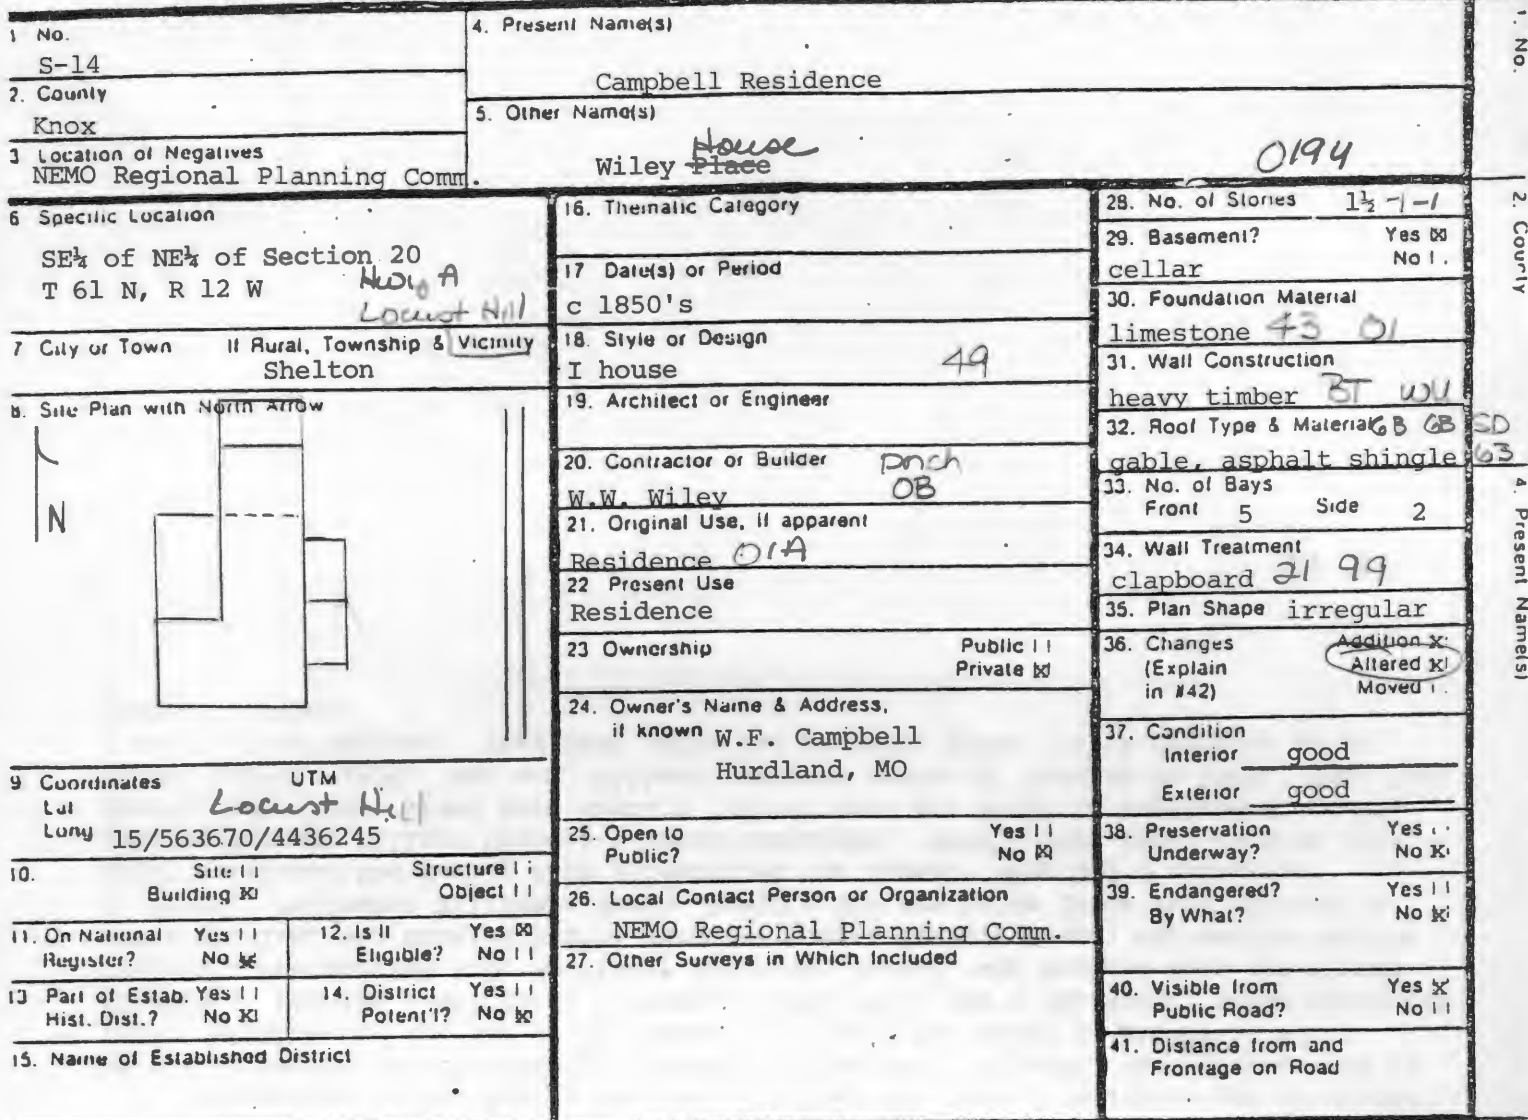 1 No.
S-14
2. County
Knox
3 Location of Negatives
NEMO Regional Planning Comm.
4. Present Name(s)
Campbell Residence
5. Other Name(s)
House
Wiley Place
0194
6 Specific Location
SE¼ of NE¼ of Section 20
T 61 N, R 12 W
Hwy A
Locust Hill
7 City or Town If Rural, Township & Vicinity
Shelton
8. Site Plan with North Arrow
N
9 Coordinates UTM
Lat
Locust Hill
Long 15/563670/4436245
10. Site Structure
Building X Object
11. On National Yes
Register? No X
12. Is It Yes X
Eligible? No
13 Part of Estab. Yes
Hist. Dist.? No X
14. District Yes
Potent'l? No X
15. Name of Established District
16. Thematic Category
17 Date(s) or Period
c 1850's
18. Style or Design
I house 49
19. Architect or Engineer
20. Contractor or Builder
porch
W.W. Wiley OB
21. Original Use, if apparent
Residence 01A
22 Present Use
Residence
23 Ownership Public
Private X
24. Owner's Name & Address,
if known W.F. Campbell
Hurdland, MO
25. Open to Yes
Public? No X
26. Local Contact Person or Organization
NEMO Regional Planning Comm.
27. Other Surveys in Which Included
28. No. of Stories 1½ -1-1
29. Basement? Yes X
cellar No
30. Foundation Material
limestone 43 01
31. Wall Construction
heavy timber BT WU
32. Roof Type & Material GB GB SD
gable, asphalt shingle 63
33. No. of Bays
Front 5 Side 2
34. Wall Treatment
clapboard 21 99
35. Plan Shape irregular
36. Changes Addition X
(Explain Altered X
in #42) Moved
37. Condition
Interior good
Exterior good
38. Preservation Yes
Underway? No X
39. Endangered? Yes
By What? No X
40. Visible from Yes X
Public Road? No
41. Distance from and
Frontage on Road
1. No.
2. County
4. Present Name(s)